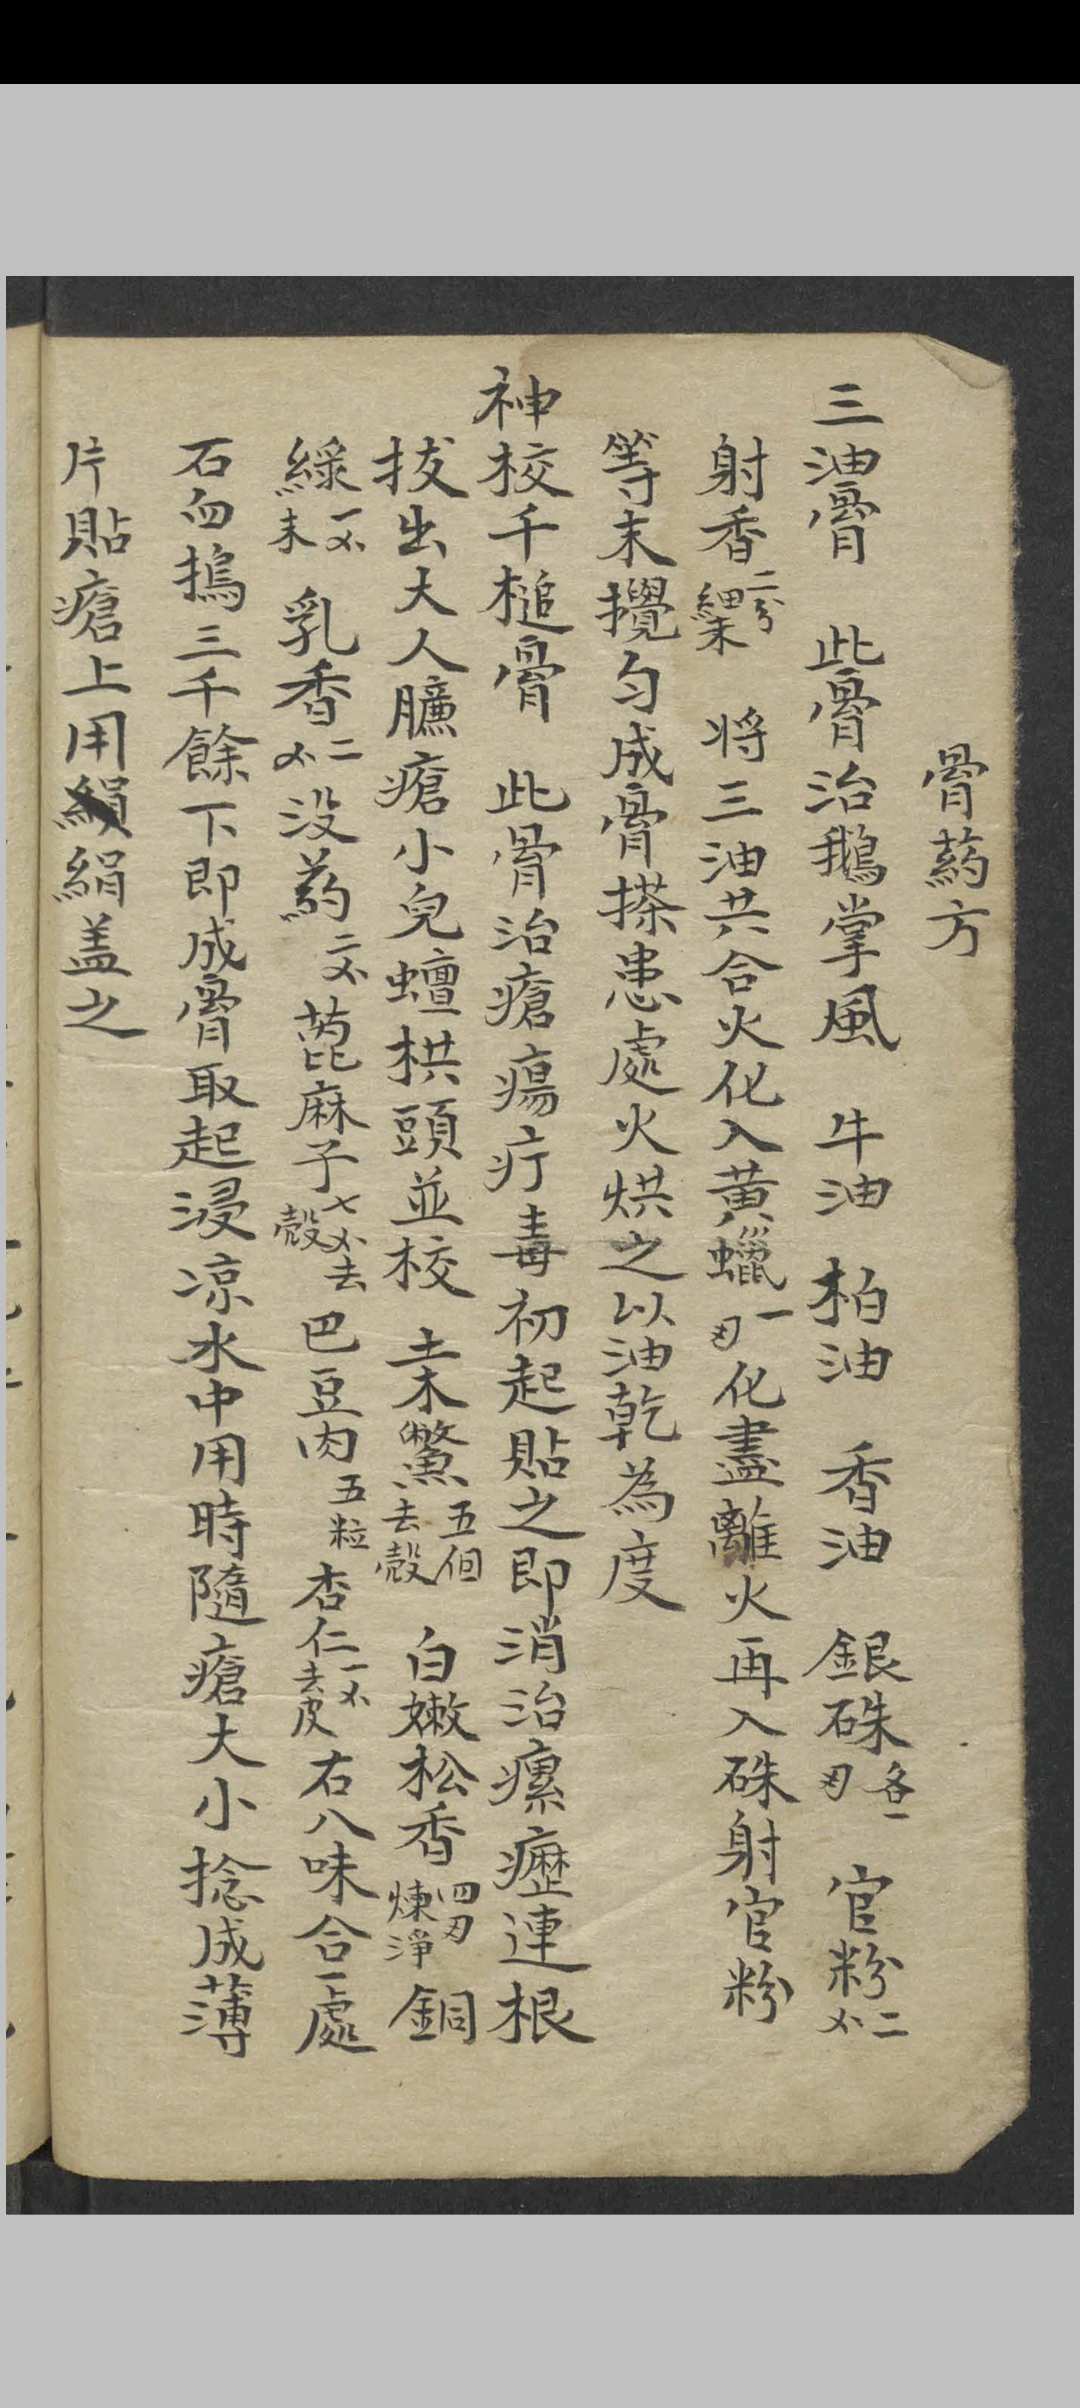 膏药方
三油膏　此膏治鵝掌風　牛油　柏油　香油　銀硃各一刄　官粉二𠆤
射香二分細末　将三油共合火化入黄蠟一刄化盡離火再入硃射官粉
等末攪匀成膏搽患處火烘之以油乾為度
神校千槌膏　此膏治瘡瘍疔毒初起貼之即消治瘰癧連根
拔出大人臁瘡小兒蟺栱頭並校　土木鱉五個去殼　白嫩松香四刄煉淨　銅
綠一末　乳香二没药二蓖麻子七去殼巴豆肉五粒杏仁一去皮右八味合一處
石臼搗三千餘下即成膏取起浸凉水中用時隨瘡大小捻成薄
片貼瘡上用絹盖之